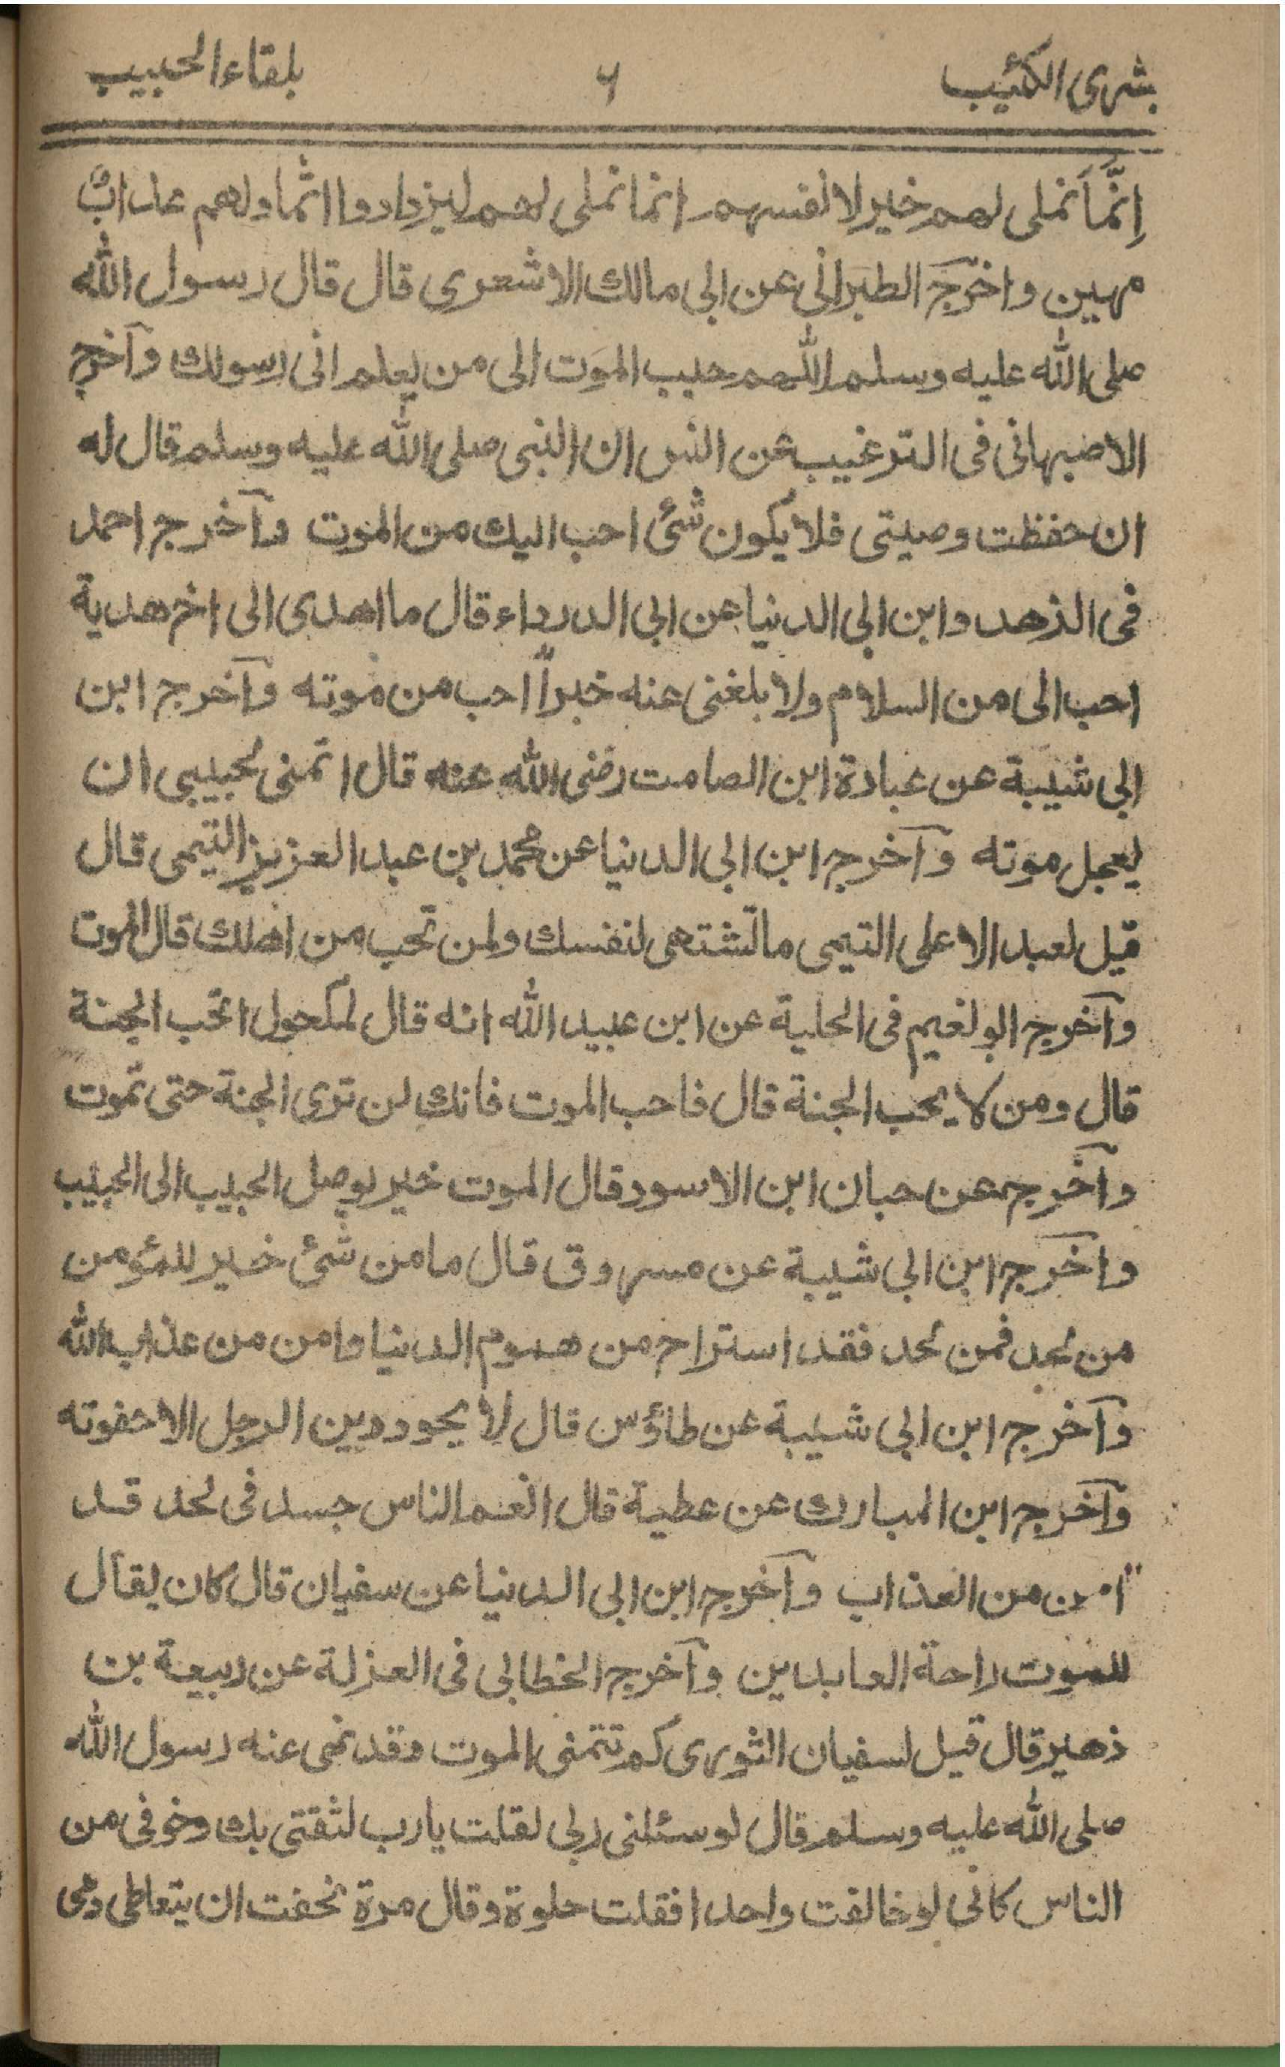 بشرى الكئيب ٦ بلقاء الحبيب
اِنَّمَا نملى لهم خير لانفسهم انما نملى لهم ليزدادوا اثما ولهم عذابٌ
مهين واخرج الطبرانى عن ابى مالك الاشعرى قال قال رسول الله
صلى الله عليه وسلم اللهم حبب الموت الى من يعلم انى رسولك وآخرج
الاصبهانى فى الترغيب عن انس ان النبى صلى الله عليه وسلم قال له
ان حفظت وصيتى فلا يكون شئ احب اليك من الموت وآخرج احمد
فى الزهد وابن ابى الدنيا عن ابى الدرداء قال ما اهدى الى اخ هدية
احب الى من السلام ولا بلغنى عنه خبراً احب من موته وآخرج ابن
ابى شيبة عن عبادة ابن الصامت رضى الله عنه قال اتمنى لحبيبى ان
يعجل موته وآخرج ابن ابى الدنيا عن محمد بن عبد العزيز التيمى قال
قيل لعبد الاعلى التيمى ما تشتهى لنفسك ولمن تحب من اهلك قال الموت
وآخرج ابو نعيم فى الحلية عن ابن عبيد الله انه قال لمكحول اتحب الجنة
قال ومن لا يحب الجنة قال فاحب الموت فانك لن ترى الجنة حتى تموت
وآخرج عن حبان ابن الاسود قال الموت خير يوصل الحبيب الى الحبيب
واخرج ابن ابى شيبة عن مسروق قال ما من شئ خير للمؤمن
من لحد فمن لحد فقد استراح من هموم الدنيا وامن من عذاب الله
وآخرج ابن ابى شيبة عن طاؤس قال لا يحوددين الرجل الا حفوته
وآخرج ابن المبارك عن عطية قال انعم الناس جسد فى لحد قد
امن من العذاب وآخرج ابن ابى الدنيا عن سفيان قال كان يقال
للموت راحة العابدين وآخرج الخطابى فى العزلة عن ربيعة بن
زهير قال قيل لسفيان الثورى كم تتمنى الموت وقد نهى عنه رسول الله
صلى الله عليه وسلم قال لو سئلنى ربى لقلت يارب لثقتى بك وخوفى من
الناس كانى لو خالفت واحدا فقلت حلوة وقال مرة نخفت ان يتعاطى دمى